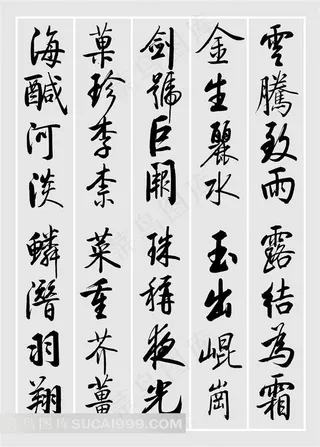 雲騰致雨 露結為霜
金生麗水 玉出崐崗
劍號巨闕 珠稱夜光
菓珍李柰 菜重芥薑
海醎河淡 鱗潛羽翔
素材公社 SUCAI999.COM